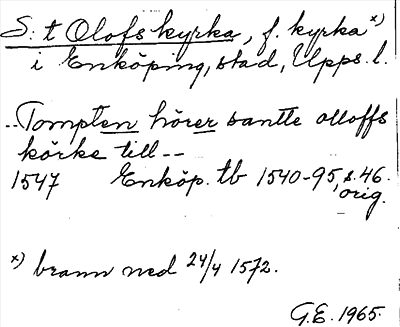 S:t Olofs kyrka, f. kyrka x)
i Enköping, stad, Upps. l.
..Tompten hörer santte olloffs
körke till--
1547 Enköp. tb 1540-95, s. 46.
orig.
x) brann ned 24/4 1572.
G.E. 1965.